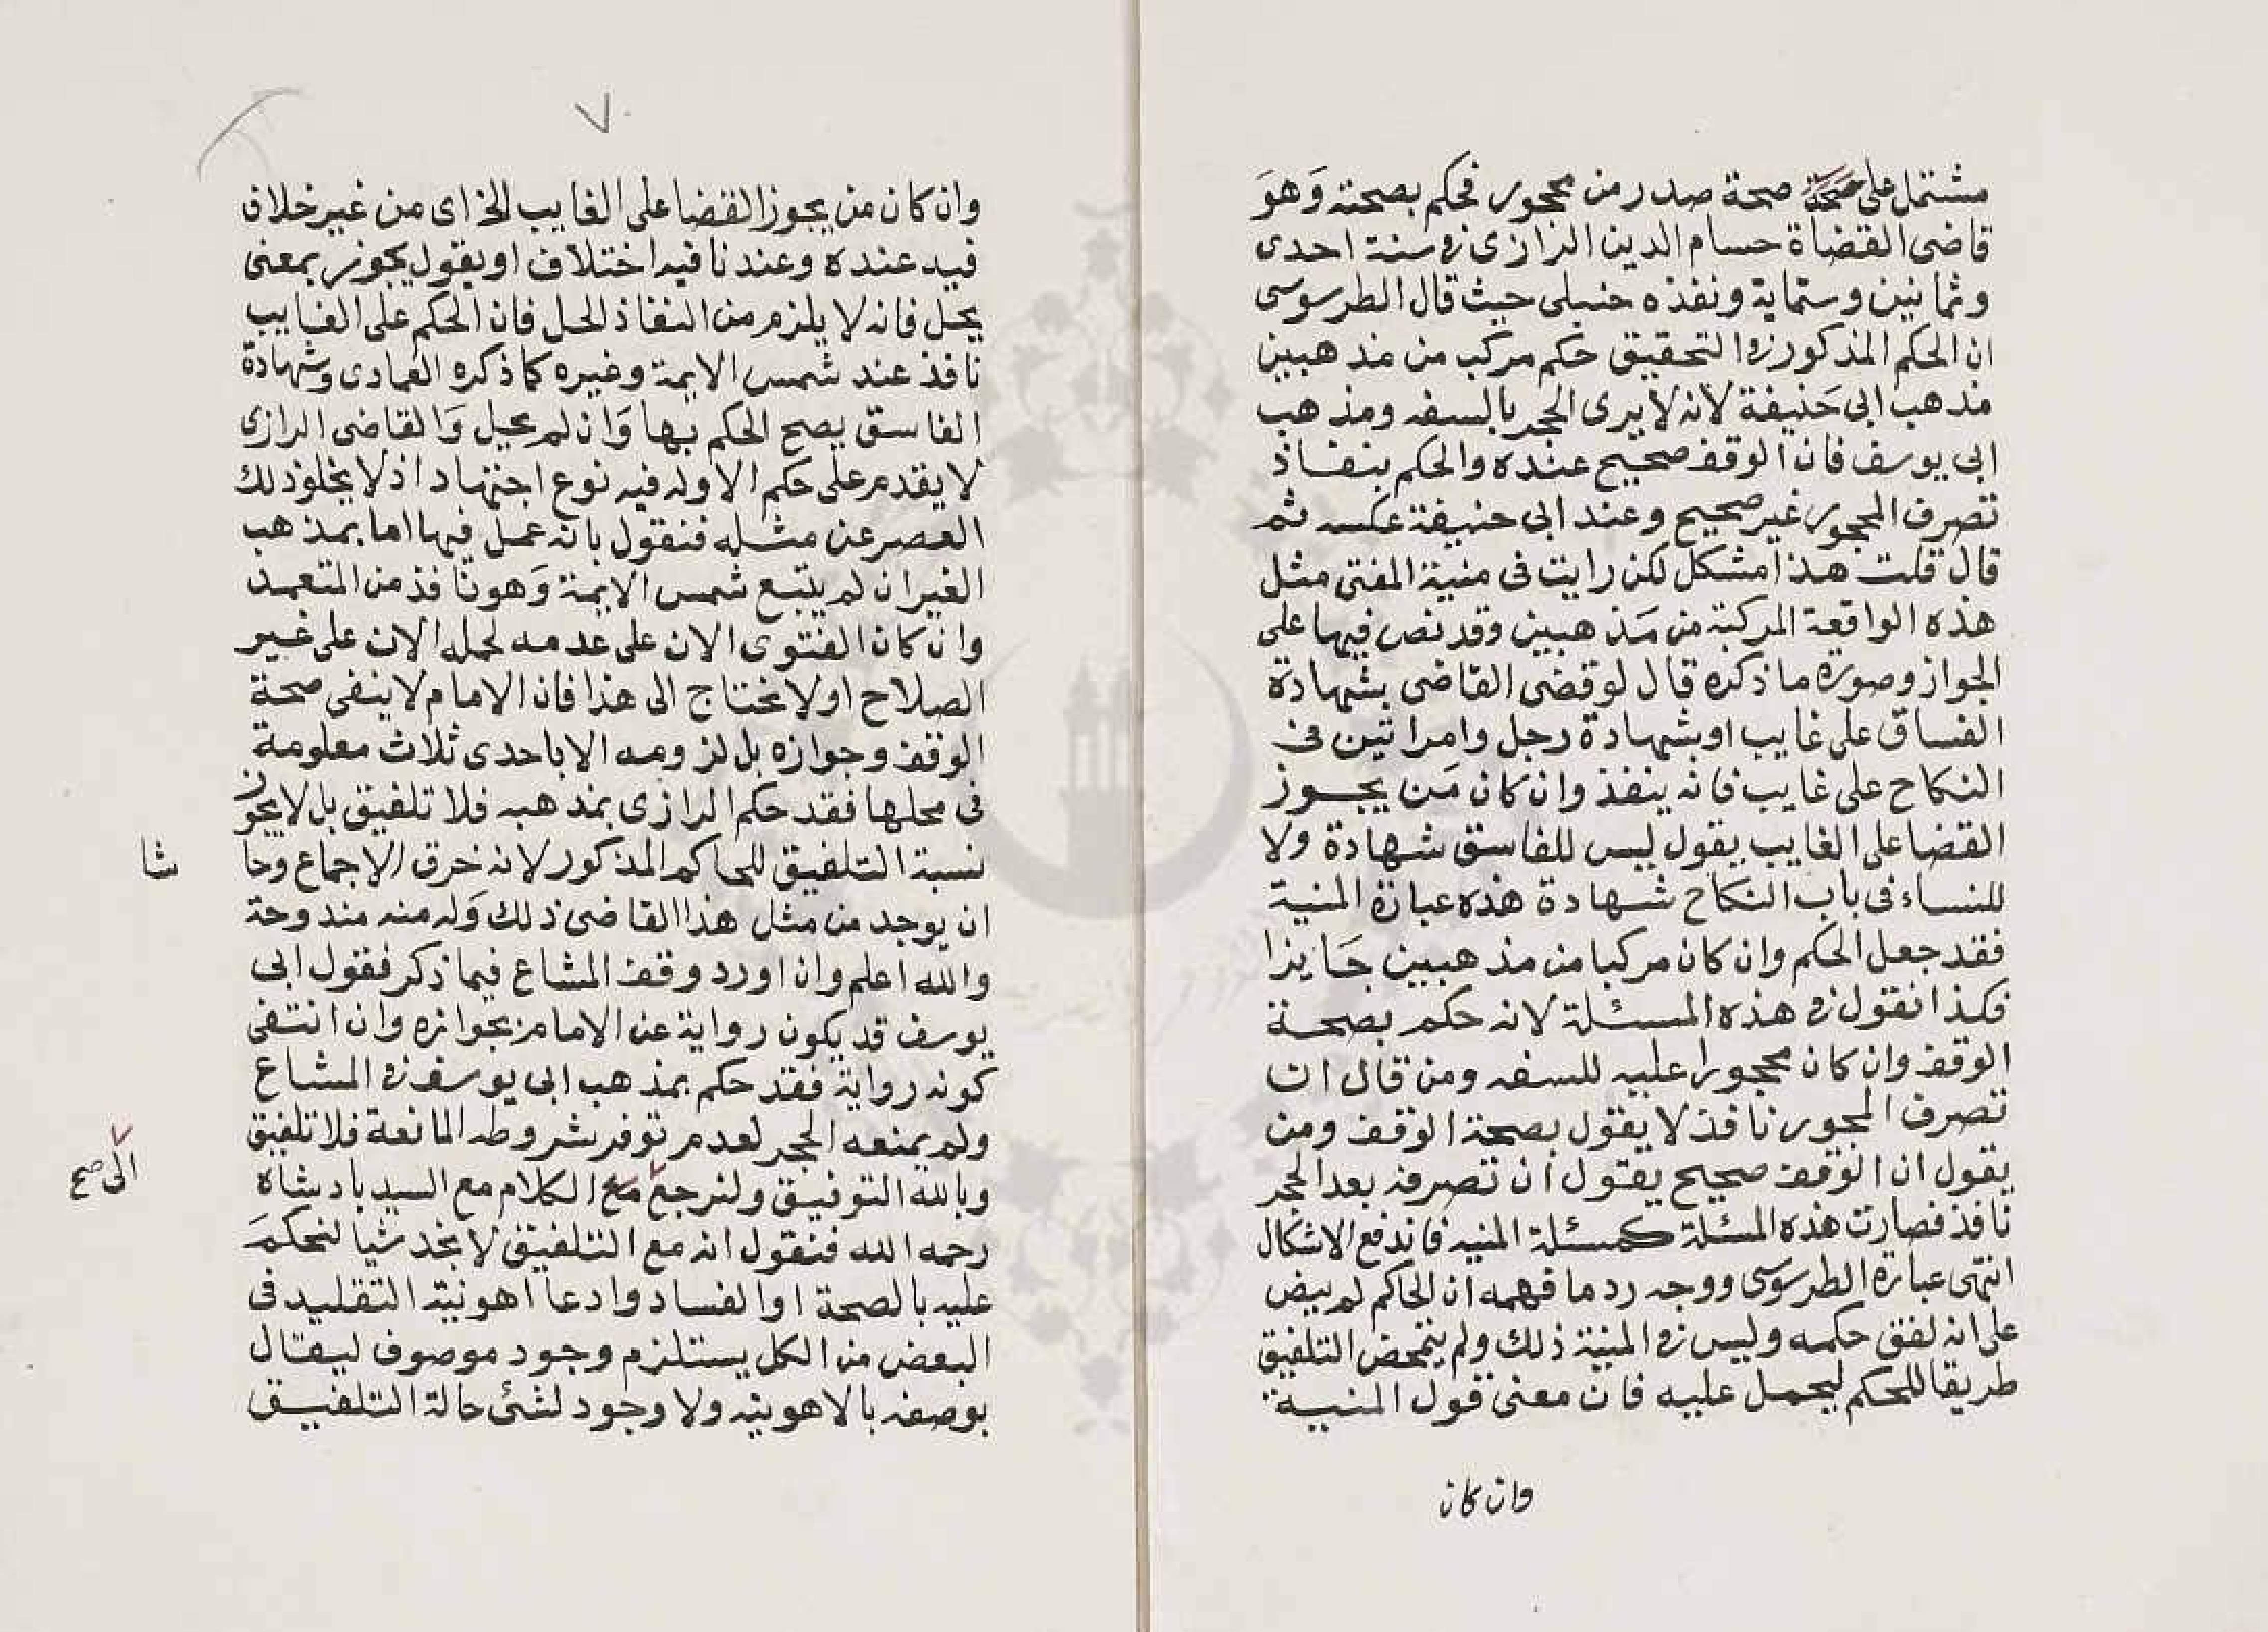 مشتمل على صحة صحة صدر من محجور فحكم بصحته وَهوَ
قاضى القضاة حسام الدين الرازى فى سنة احدى
وثمانين وستماية ونفذه حنبلى حيث قال الطرسوسى
ان الحكم المذكور فى التحقيق حكم مركب من مذهبين
مذهب ابى حَنيفة لانه لا يرى الحجر بالسفه ومذهب
ابى يوسف فان الوقف صحيح عنده والحكم بنفاذ
تصرف المحجور غير صحيح وعند ابى حنيفة عكسه ثم
قال قلت هذا مشكل لكن رايت فى منية المفتى مثل
هذه الواقعة المركبة من مَذهبين وقد نص فيها على
الجواز وصوره ما ذكره قال لو قضى القاضى بشهادة
الفساق على غايب او بشهادة رجل وامراتين فى
النكاح على غايب فانه ينفذ وان كان مَن يجوز
القضا على الغايب يقول ليس للفاسق شهادة ولا
للنساء فى باب النكاح شهادة هذه عبارة المنية
فقد جعل الحكم وان كان مركبا من مذهبين جَايزا
فكذا نقول فى هذه المسئلة لانه حكم بصحة
الوقف وان كان محجورا عليه للسفه ومن قال ان
تصرف المحجور نافذ لا يقول بصحة الوقف ومن
يقول ان الوقف صحيح يقول ان تصرفه بعد الحجر
نافذ فصارت هذه المسئلة كمسئلة المنيه فاندفع الاشكال
انتهى عبارة الطرسوسى ووجه رد ما فهمه ان الحاكم لم ينص
على انه لفق حكمه وليس فى المنية ذلك ولم يتمحض التلفيق
طريقا للحكم ليحمل عليه فان معنى قول المنية
وان كان
٧
وان كان من يجوز القضا على الغايب الخ اى من غير خلاف
فيه عنده وعندنا فيه اختلاف او يقول يجوز بمعنى
يحل فانه لا يلزم من النفاذ الحل فان الحكم على الغايب
نافذ عند شمس الايمة وغيره كما ذكره العمادى وشهادة
الفاسق يصح الحكم بها وَان لم يحل وَالقاضى الرازى
لا يقدم على حكم الا وله فيه نوع اجتهاد اذ لا يخلو ذلك
العصر عن مثله فنقول بانه عمل فيها اما بمذهب
الغير ان لم يتبع شمس الايمة وَهو نافذ من المتعمد
وان كان الفتوى الان على عدمه لحمله الان على غير
الصلاح او لا نحتاج الى هذا فان الامام لا ينفى صحة
الوقف وجوازه بل لزومه الا باحدى ثلاث معلومة
فى محلها فقد حكم الرازى بمذهبه فلا تلفيق بل لا يجوز
نسبة التلفيق للحاكم المذكور لانه خرق الاجماع وحا
شا
ان يوجد من مثل هذا القاضى ذلك وَله منه مندوحة
والله اعلم وان اورد وقف المشاع فيما ذكر فقول ابى
يوسف قد يكون رواية عن الامام بجوازه وان انتفى
كونه رواية فقد حكم بمذهب ابى يوسف فى المشاع
ولم يمنعه الحجر لعدم توفر شروطه المانعة فلا تلفيق
وبالله التوفيق ولنرجع مع الكلام مع السيد بادشاه
الى صح
رحمه الله فنقول انه مع التلفيق لا نجد شيا لنحكمَ
عليه بالصحة او الفساد وادعا اهونية التقليد فى
البعض من الكل يستلزم وجود موصوف ليقال
بوصفه بالاهونيه ولا وجود لشئ حالة التلفيق